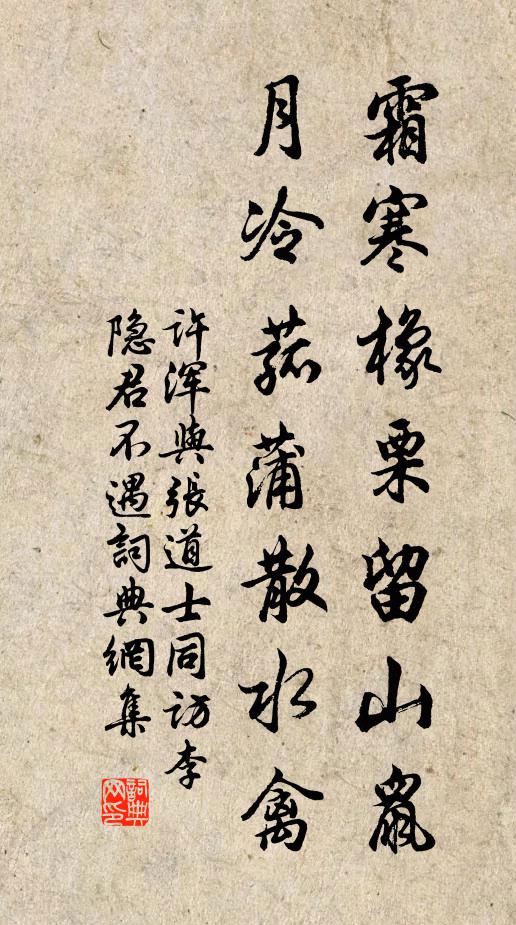 霜寒橡栗留山鼠
月冷菰蒲散水禽
许浑與張道士同訪李
隐君不遇詞典網集
詞典
网印